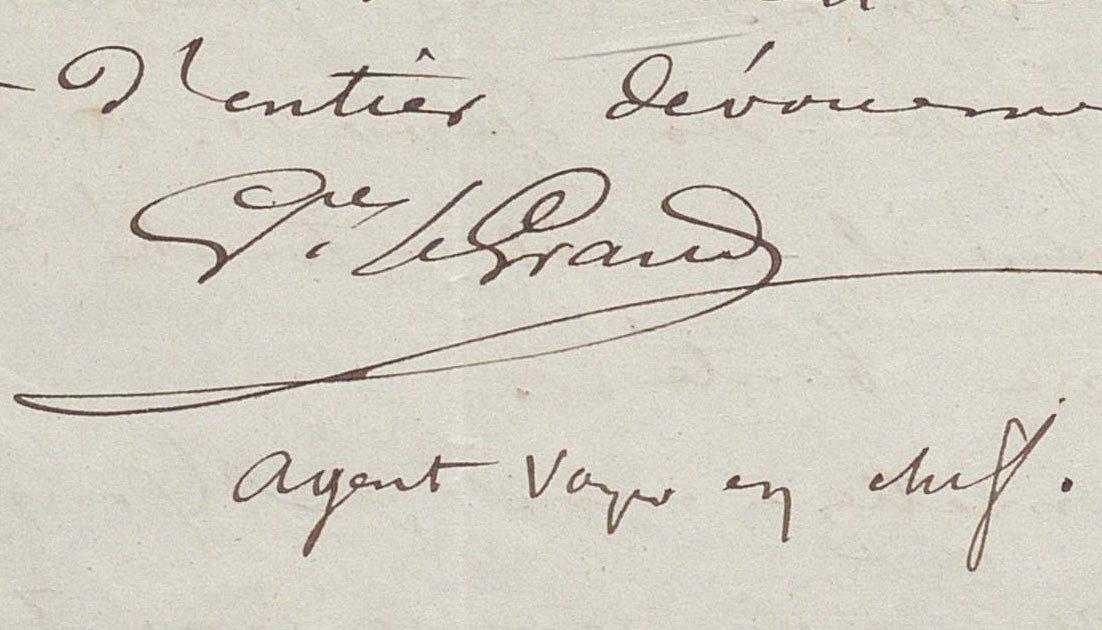 d'entier dévouem
Gve LeGrand
agent Voyer en chef.